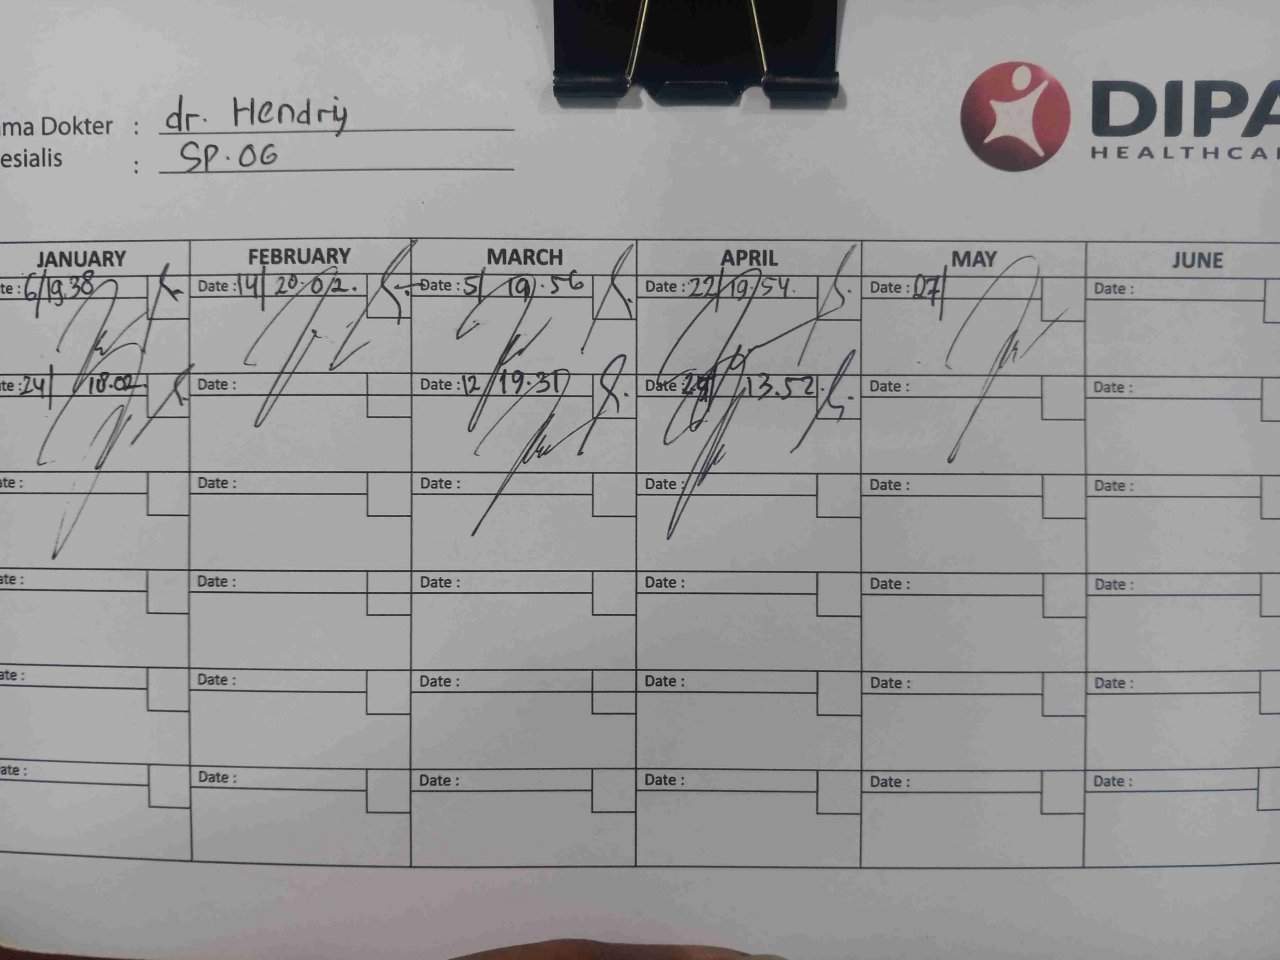 ma Dokter : dr. Hendriy
esialis : SP.OG
DIPA
HEALTHCA
JANUARY FEBRUARY MARCH APRIL MAY JUNE
te : 6/19.38 Date : 14/ 20.02. Date : 5/ 19.56 Date : 22/19.54. Date : 27/ Date :
te : 24/ 18.02 Date : Date : 12/19.31 Date : 13.52. Date : Date :
te : Date : Date : Date : Date : Date :
ate : Date : Date : Date : Date : Date :
ate : Date : Date : Date : Date : Date :
ate : Date : Date : Date : Date : Date :